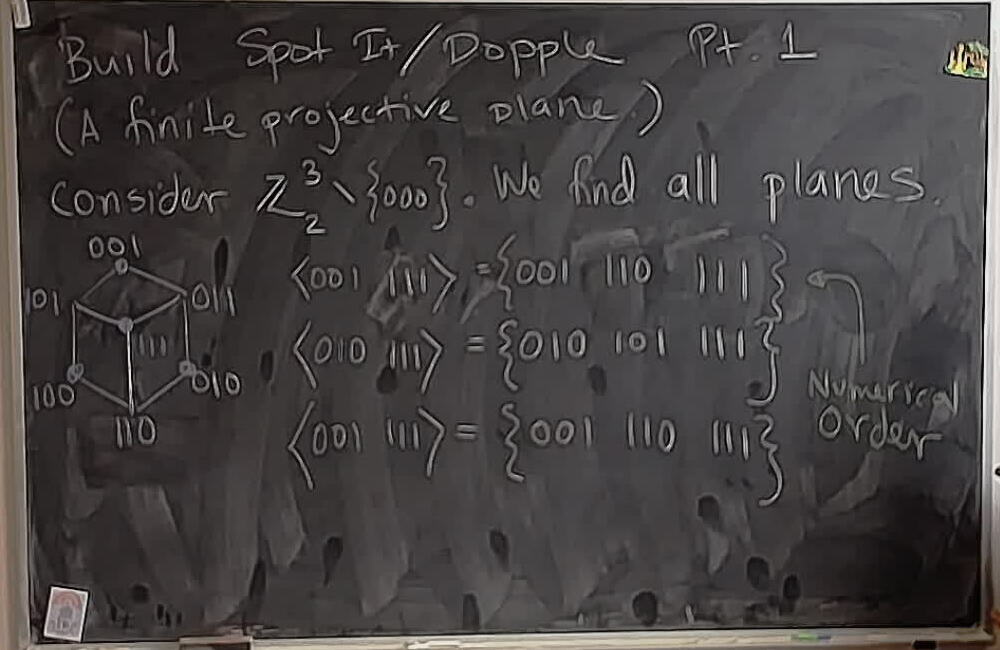 Build Spot It/Dopple Pt. 1
(A finite projective plane.)
Consider ℤ₂³ \ {000}. We find all planes.
001
101
011
111
100
010
110
⟨001 111⟩ = {001 110 111}
⟨010 111⟩ = {010 101 111}
⟨001 111⟩ = {001 110 111}
Numerical
Order